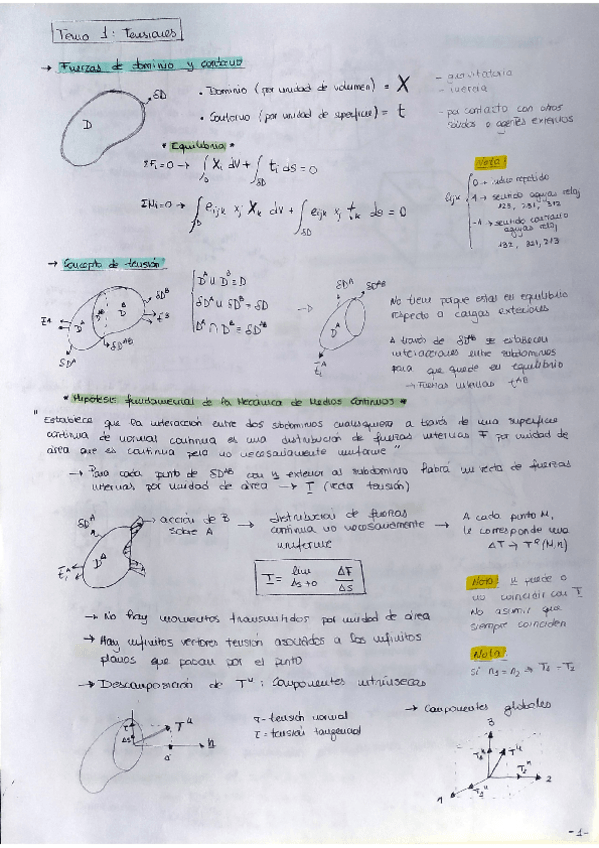 Tema 1: Tensiones
→ Fuerzas de dominio y contorno
D
δD
• Dominio (por unidad de volumen) = X
- gravitatoria
- inercia
• Contorno (por unidad de superficie) = t
- por contacto con otros
sólidos o agentes externos
* Equilibrio *
ΣFi = 0 → ∫D Xi dV + ∫δD ti ds = 0
ΣMi = 0 → ∫D eijk xj Xk dV + ∫δD eijk xj tk ds = 0
Nota:
eijk
0 → índice repetido
1 → sentido agujas reloj
123, 231, 312
-1 → sentido contrario
agujas reloj
132, 321, 213
→ Concepto de tensión
D^A
D^B
δD^B
t^B
t^A
δD^AB
δD^A
D^A ∪ D^B = D
δD^A ∪ δD^B = δD
D^A ∩ D^B = δD^AB
→
δD^A
δD^AB
D^A
No tiene porque estar en equilibrio
respecto a cargas exteriores
A través de δD^AB se establecen
interacciones entre subdominios
para que quede en equilibrio
→ Fuerzas internas t^AB
* Hipótesis fundamental de la Mecánica de Medios Continuos *
"Establece que la interacción entre dos subdominios cualesquiera a través de una superficie
continua de normal continua es una distribución de fuerzas internas F por unidad de
área que es continua pero no necesariamente uniforme"
→ Para cada punto de δD^AB con n exterior al subdominio habrá un vector de fuerzas
internas por unidad de área → T (vector tensión)
δD^A
D^A
acción de B
sobre A
→ distribución de fuerzas
continua no necesariamente
uniforme
→ A cada punto M,
le corresponde una
T = lim Δs→0 ΔF/Δs
Nota: n puede o
no coincidir con T
No asumir que
siempre coinciden
→ No hay momentos transmitidos por unidad de área
→ Hay infinitos vectores tensión asociados a los infinitos
planos que pasan por el punto
Nota:
Si n1 = n2 ⇒ T1 = T2
→ Descomposición de T^n: Componentes intrínsecas
T^n
n
Δs
σ
σ - tensión normal
τ - tensión tangencial
→ Componentes globales
3
T^n
2
1
-1-